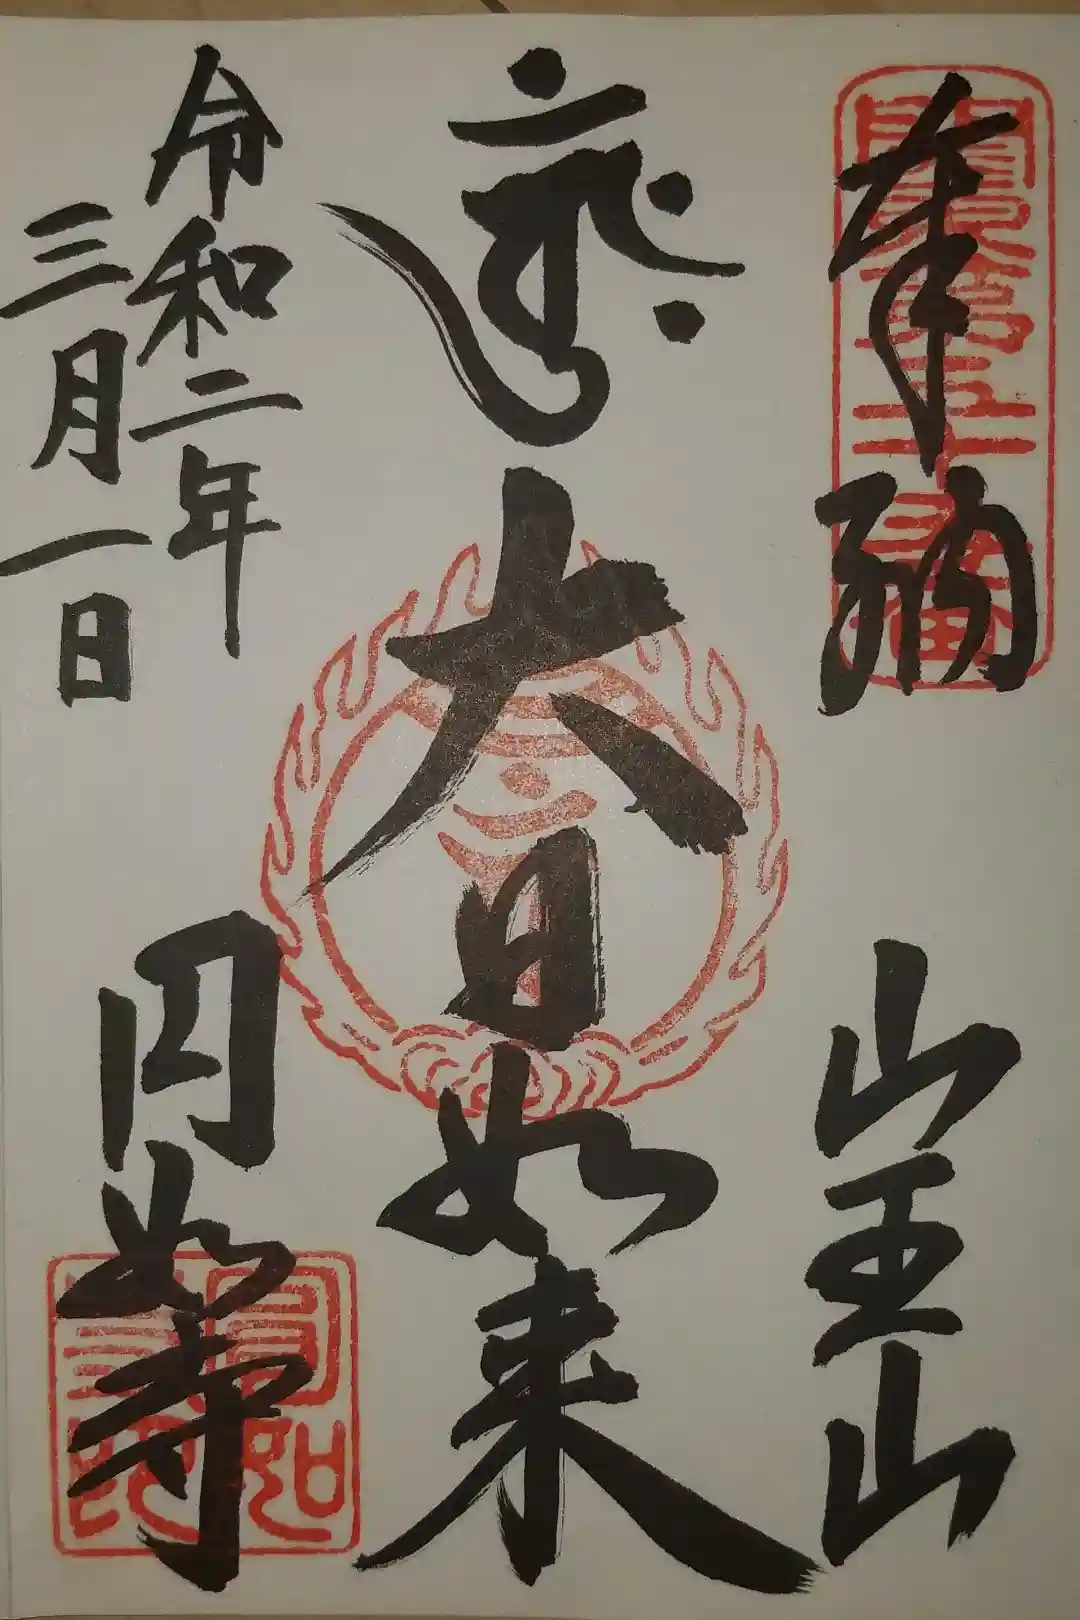 奉納
山王山
大日如来
令和二年
三月一日
円如寺